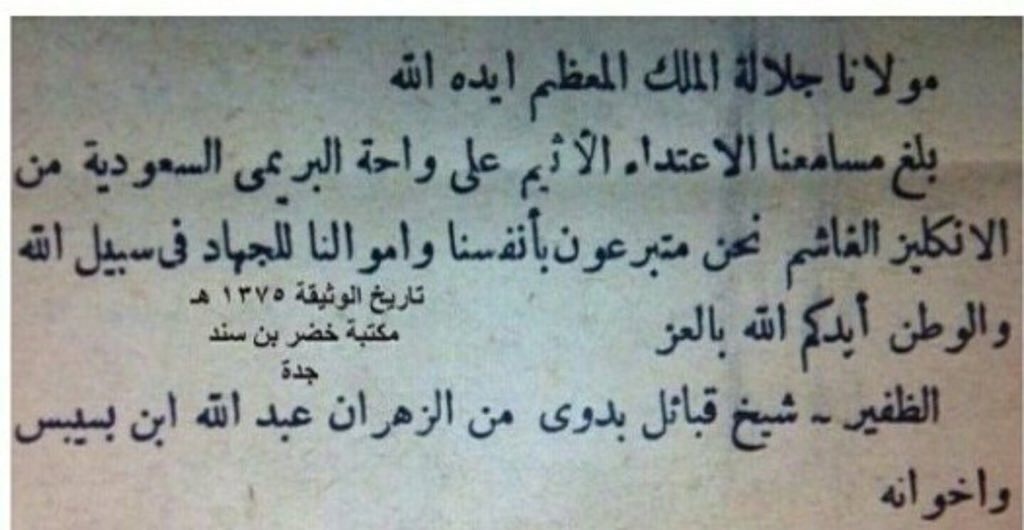 مولانا جلالة الملك المعظم ايده الله
بلغ مسامعنا الاعتداء الأثيم على واحة البريمى السعودية من
الانكليز الغاشم نحن متبرعون بأنفسنا واموالنا للجهاد فى سبيل الله
والوطن أيدكم الله بالعز
تاريخ الوثيقة ١٣٧٥ هـ
مكتبة خضر بن سند
جدة
الظفير ـ شيخ قبائل بدوى من الزهران عبد الله ابن بسيبس
واخوانه